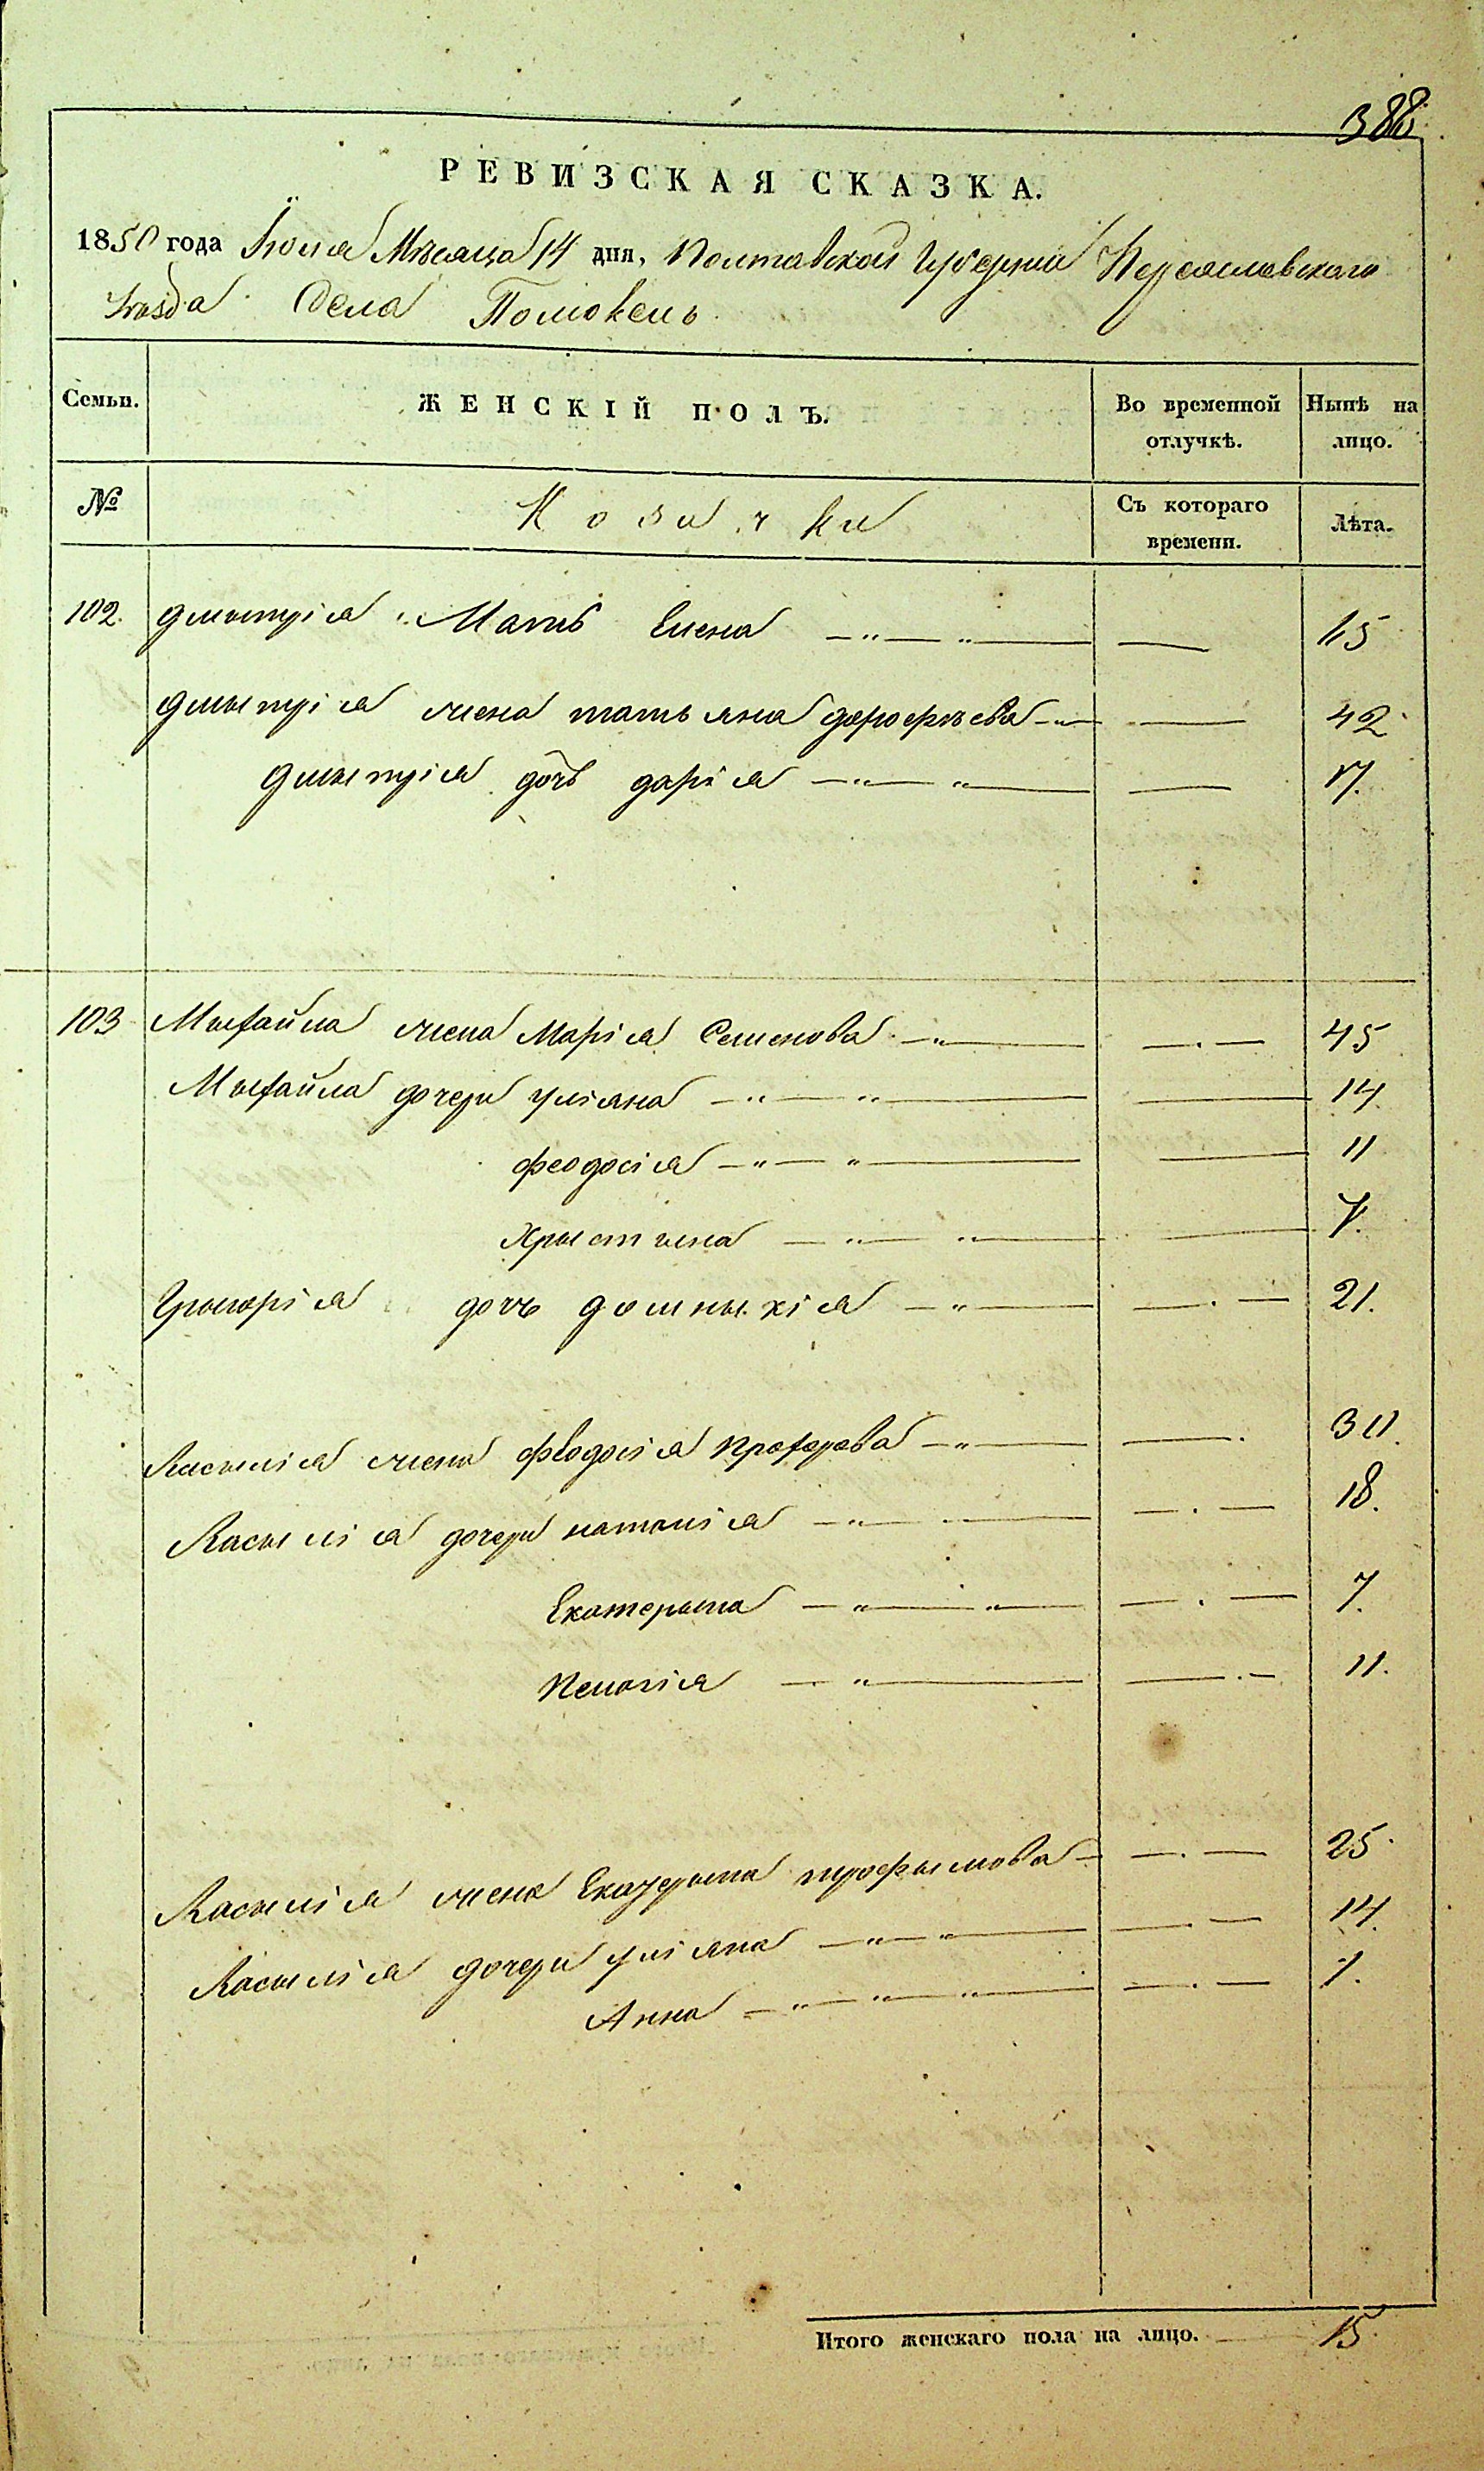 388
РЕВИЗСКАЯ СКАЗКА.
1850 года Іюля Мѣсяца 14 дня, Полтавской Губерніи Переяславскаго
уѣзда Села Помокель
Семьи. ЖЕНСКІЙ ПОЛЪ. Во временной отлучкѣ. Нынѣ на лицо.
№ Козачки Съ котораго времени. Лѣта.
102. Дмытрія Мать Елена 65
Дмытрія жена татьяна дорофѣева 42
Дмытрія дочь дарія 17.
103 Мыхайла жена Марія Семенова 45
Мыхайла дочери уліяна 14
феодосія 11
Хрыстына 7.
Грыгорія дочь домныкія 21.
Васылія жена феодосія прохорова 30.
Васылія дочери наталія 18.
Екатерына 7.
Пелагія 11.
Васылія жена Екатерына трофымова 25
Васылія дочери уліяна 14.
Анна 1.
Итого женскаго пола на лицо. 15